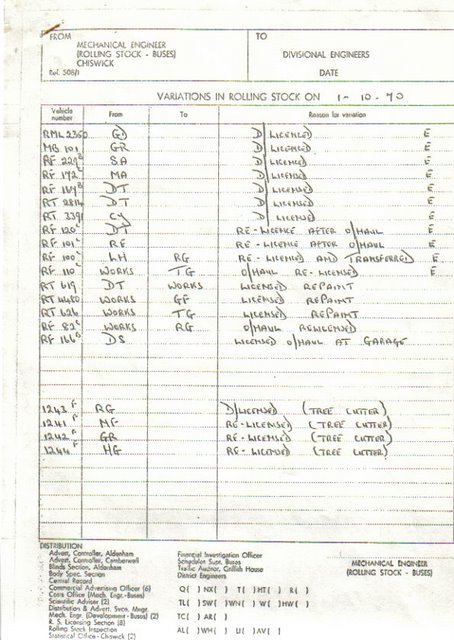 FROM
MECHANICAL ENGINEER
(ROLLING STOCK - BUSES)
CHISWICK
Ref. 508/1
TO
DIVISIONAL ENGINEERS
DATE
VARIATIONS IN ROLLING STOCK ON 1-10-70
Vehicle number From To Reason for variation
RML 2350 GD D/LICENCED E
MB 101 GR D/LICENCED E
RF 229 SA D/LICENCED E
RF 172 MA D/LICENCED E
RF 169 DT D/LICENSED
RT 2814 DT D/LICENSED
RT 3391 CY D/LICENSED
RF 120 DT RE-LICENCE AFTER O/HAUL E
RF 101 RE RE-LICENCE AFTER O/HAUL E
RF 100 LH RG RE-LICENSED AND TRANSFERRED E
RF 110 WORKS TG O/HAUL RE-LICENSED E
RT 619 DT WORKS LICENSED REPAINT
RT 4480 WORKS GF LICENSED REPAINT
RT 626 WORKS TG LICENSED REPAINT
RF 82 WORKS RG O/HAUL RELICENSED
RF 166 DS LICENSED O/HAUL AT GARAGE
1243 F RG D/LICENSED (TREE CUTTER)
1241 F MF RE-LICENSED (TREE CUTTER)
1242 F GR RE-LICENSED (TREE CUTTER)
1244 F HG RE-LICENSED (TREE CUTTER)
DISTRIBUTION
Advert. Controller, Aldenham
Advert. Controller, Camberwell
Blinds Section, Aldenham
Body Spec. Section
Central Record
Commercial Advertising Officer (6)
Costs Office (Mech. Engr.-Buses)
Scientific Adviser (2)
Distribution & Advert. Svce. Mngr.
Mech. Engr.-Buses) (2)
R. S. Licensing Section (8)
Rolling Stock Inspection
Statistical Office - Chiswick (2)
Financial Investigation Officer
Schedules Supt. Buses
Traffic Auditor, Griffith House
District Engineers
Q( ) NX( ) T( ) HT( ) R( )
TL( ) SW( ) WN( ) W( ) HW( )
TC( ) AR( )
AL( ) WH( ) U( ) AV( )
MECHANICAL ENGINEER
(ROLLING STOCK - BUSES)